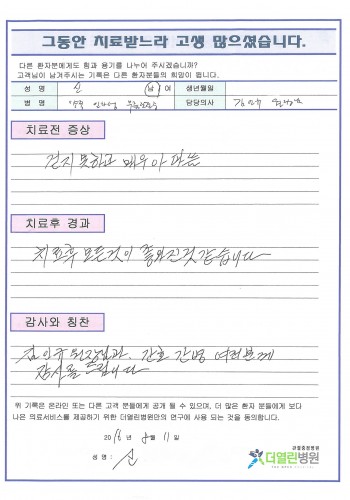 그동안 치료받느라 고생 많으셨습니다.
다른 환자분에게도 힘과 용기를 나누어 주시겠습니까?
고객님이 남겨주시는 기록은 다른 환자분들의 희망이 됩니다.
성 명 신 남 여 생년월일
병 명 담당의사
치료전 증상
걷지 못하고 매우 아파음
치료후 경과
치료후 모든것이 좋아진것 같습니다
감사와 칭찬
김민규 원장님과. 간호 간병 여러분께
감사를 드립니다
위 기록은 온라인 또는 다른 고객 분들에게 공개 될 수 있으며, 더 많은 환자 분들에게 보다
나은 의료서비스를 제공하기 위한 더열린병원만의 연구에 사용 되는 것을 동의합니다.
2016 년 8 월 11 일
성 명 : 신
관절중점병원
더열린병원